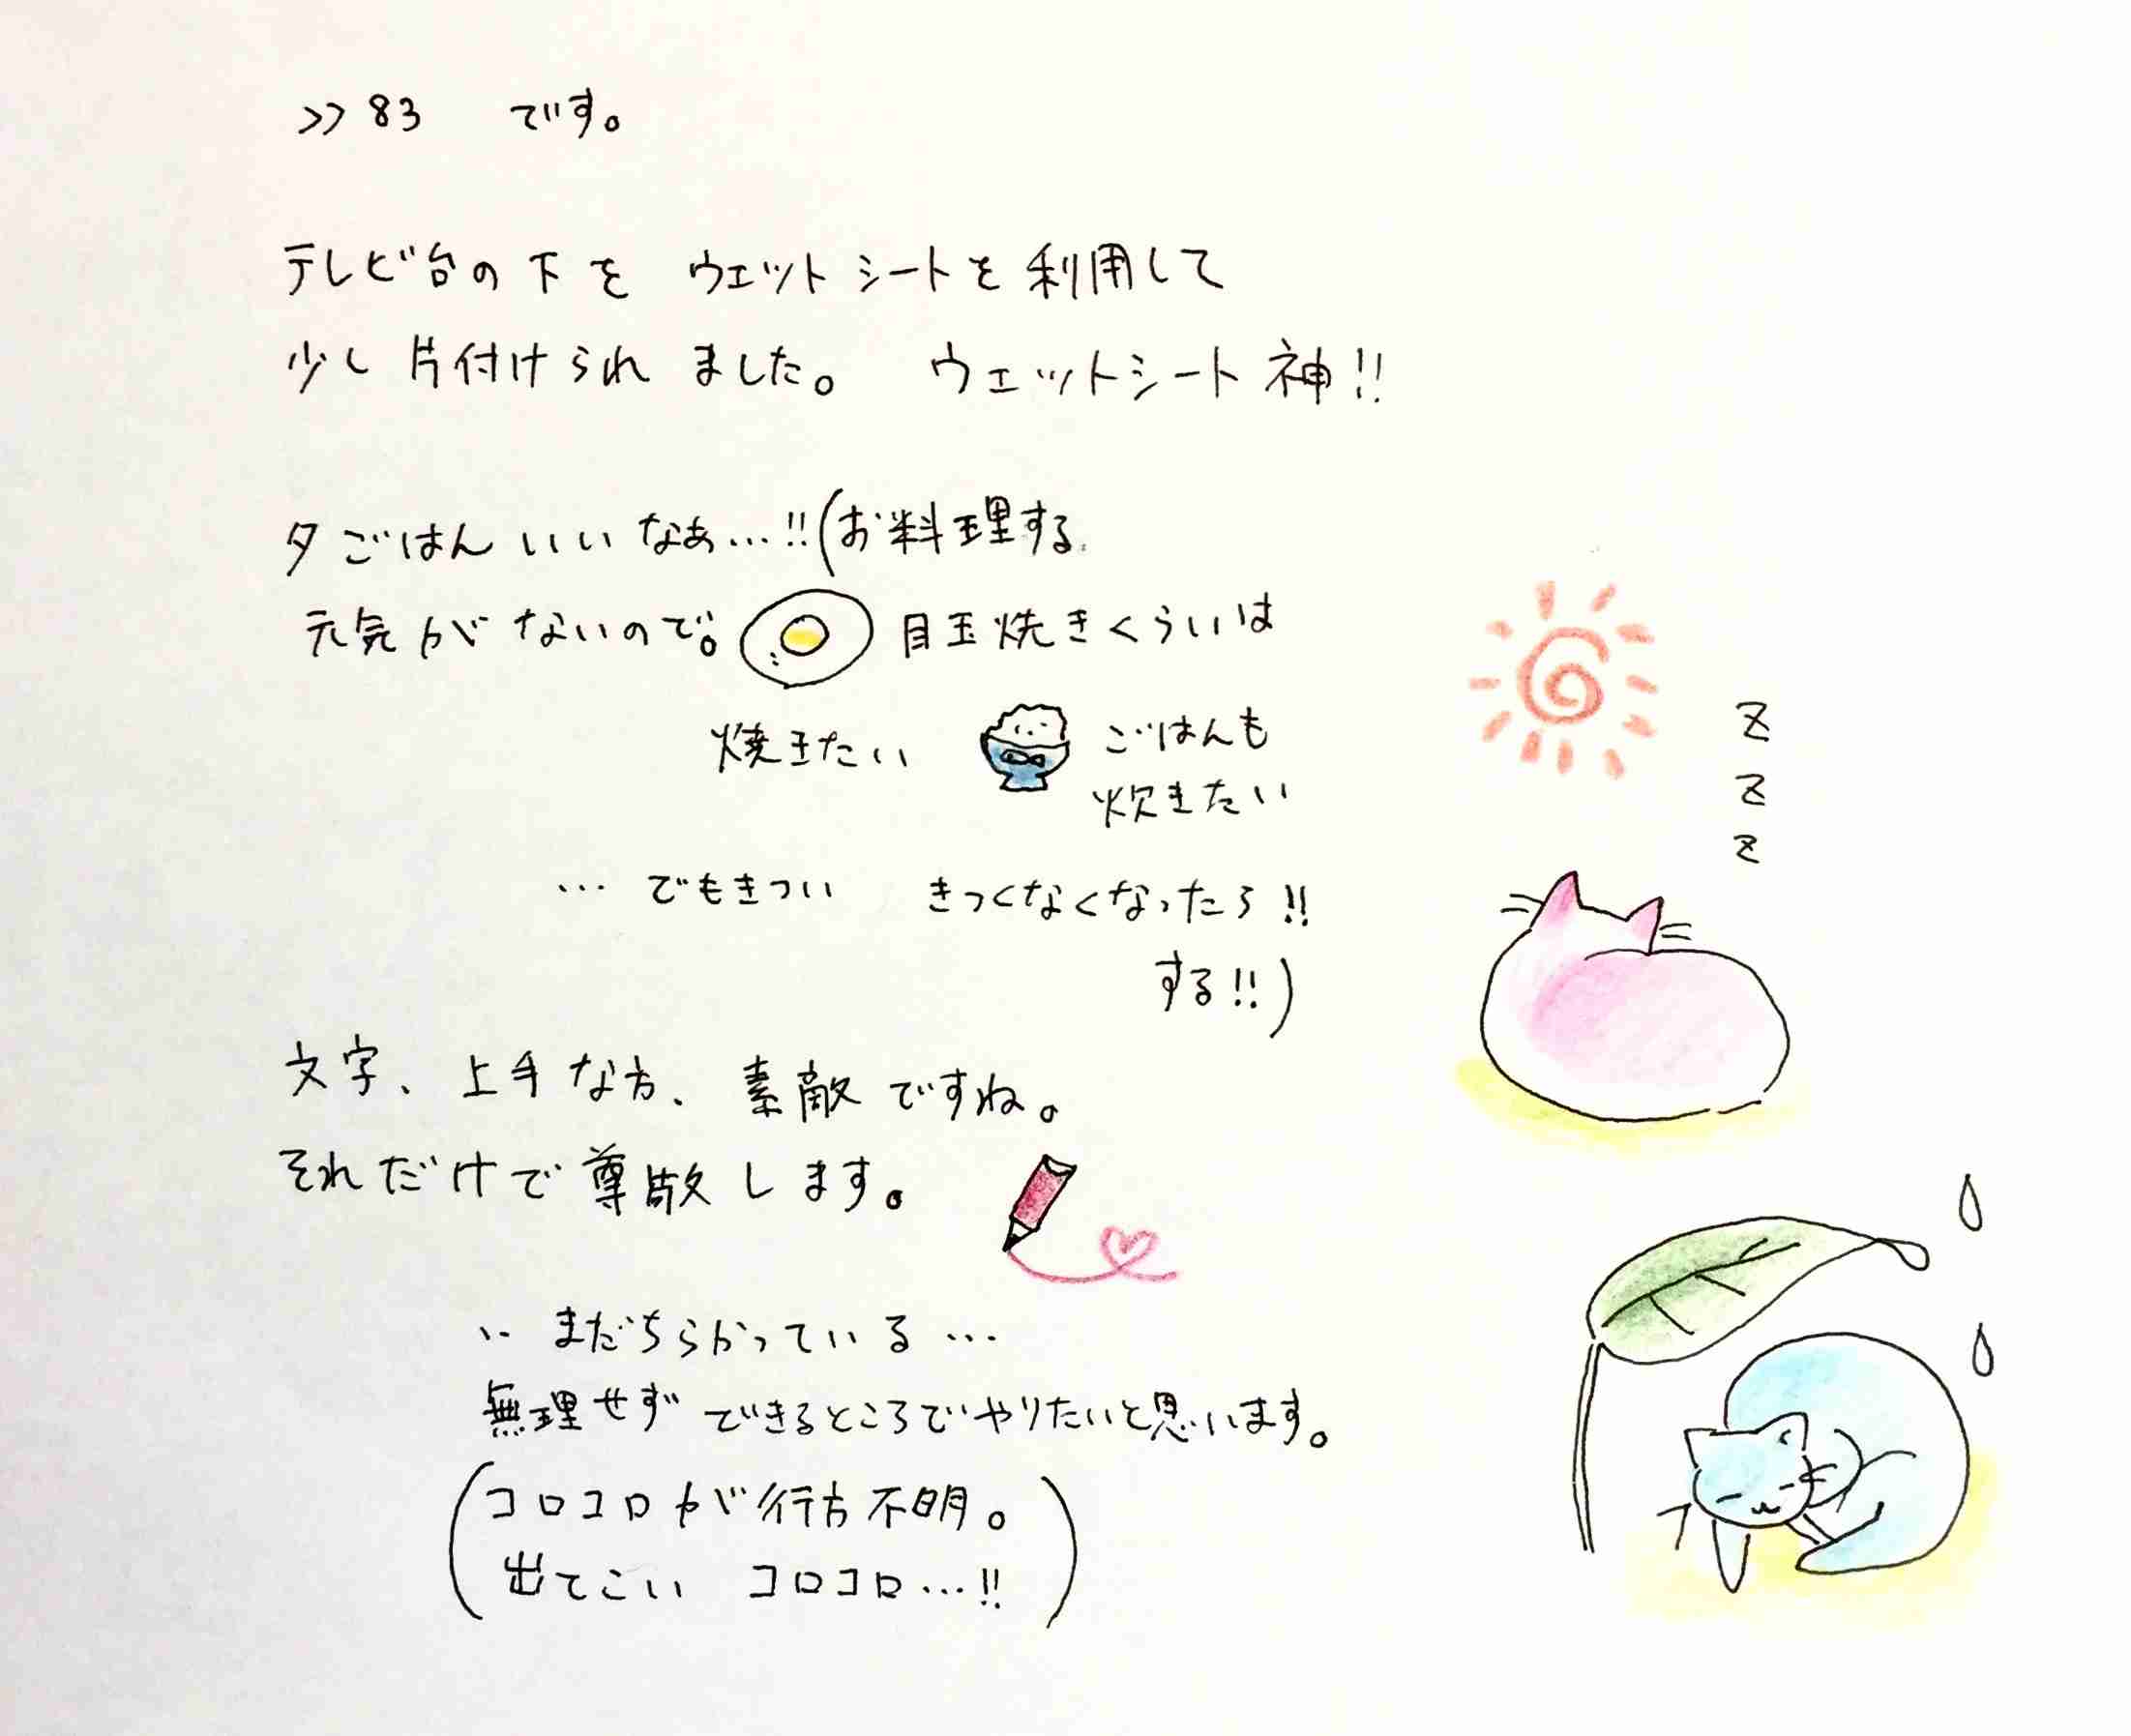 >>83 です。
テレビ台の下を ウェットシートを利用して
少し片付けられました。 ウェットシート神!!
夕ごはんいいなぁ…!!(お料理する
元気がないので。 目玉焼きくらいは
焼きたい ごはんも
炊きたい
…でもきつい きつくなくなったら!!
する!!)
文字、上手な方、素敵ですね。
それだけで尊敬します。
‥まだちらかっている…
無理せずできるところでやりたいと思います。
(コロコロが行方不明。
出てこい コロコロ…!!)
Z
Z
Z